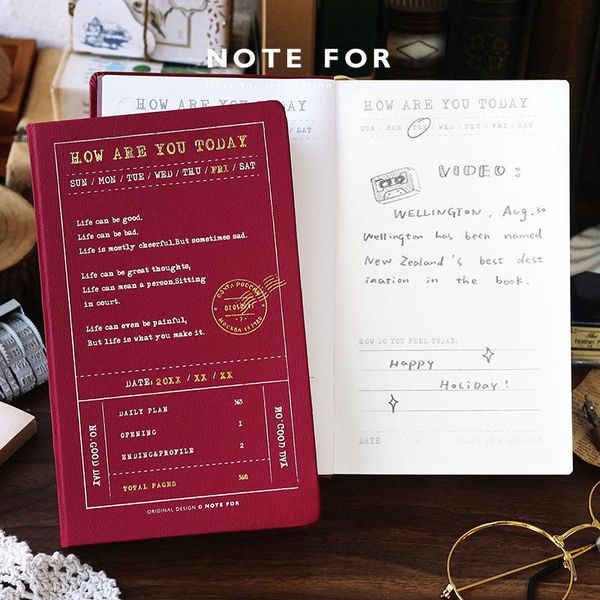 NOTE FOR
Note for inspiration and joy
HOW ARE YOU TODAY
SUN / MON / TUE / WED / THU / FRI / SAT
Life can be good,
Life can be bad,
Life is mostly cheerful,But sometimes sad.
Life can be great thoughts,
Life can mean a person,Sitting
in court.
Life can even be painful,
But life is what you make it.
ПОЧТА РОССИИ
МОСКВА
DATE: 20XX / XX / XX
NO. GOOD DAY
DAILY PLAN 365
OPENING 1
ENDING&PROFILE 2
TOTAL PAGES 368
NO. GOOD DAY
ORIGINAL DESIGN © NOTE FOR
HOW ARE YOU TODAY
SAT
HOW ARE YOU TODAY
SUN / MON / TUE / WED / THU / FRI / SAT
VIDEO :
WELLINGTON, Aug.30
Wellington has been named
New Zealand's best dest
ination in the book.
HOW DO YOU FEEL TODAY:
Happy
Holiday!
DATE